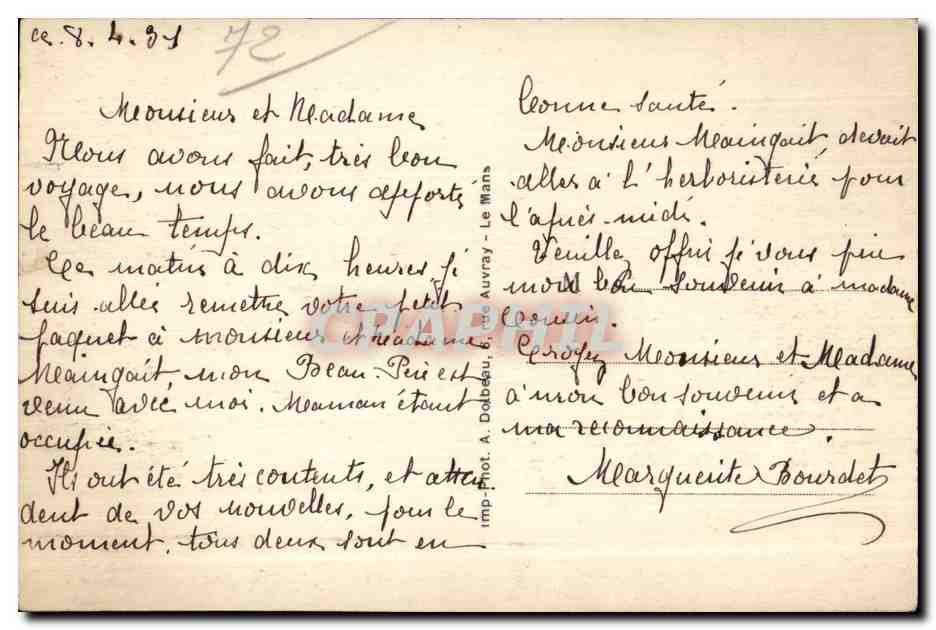 ce. 8. 4. 31
72
Monsieur et Madame
Nous avons fait, très bon
voyage, nous avons apporté
le beau temps.
Ce matin à dix heures, je
suis allée remettre votre petit
paquet à monsieur et madame
Maingait, mon Beau-Père est
venu avec moi. Maman étant
occupée.
Ils ont été très contents, et atten
dent de vos nouvelles, pour le
moment, tous deux sont en
Imp-Phot. A. Dolbeau, 6, rue Auvray - Le Mans
bonne santé.
Monsieur Maingait, devait
aller à l'herboristerie pour
l'après-midi.
Veuillez offrir je vous prie
mon bon souvenir à madame
Cousin.
Croyez Monsieur et Madame
à mon bon souvenir et a
ma reconnaissance.
Marguerite Bourdet
CPAPHIL